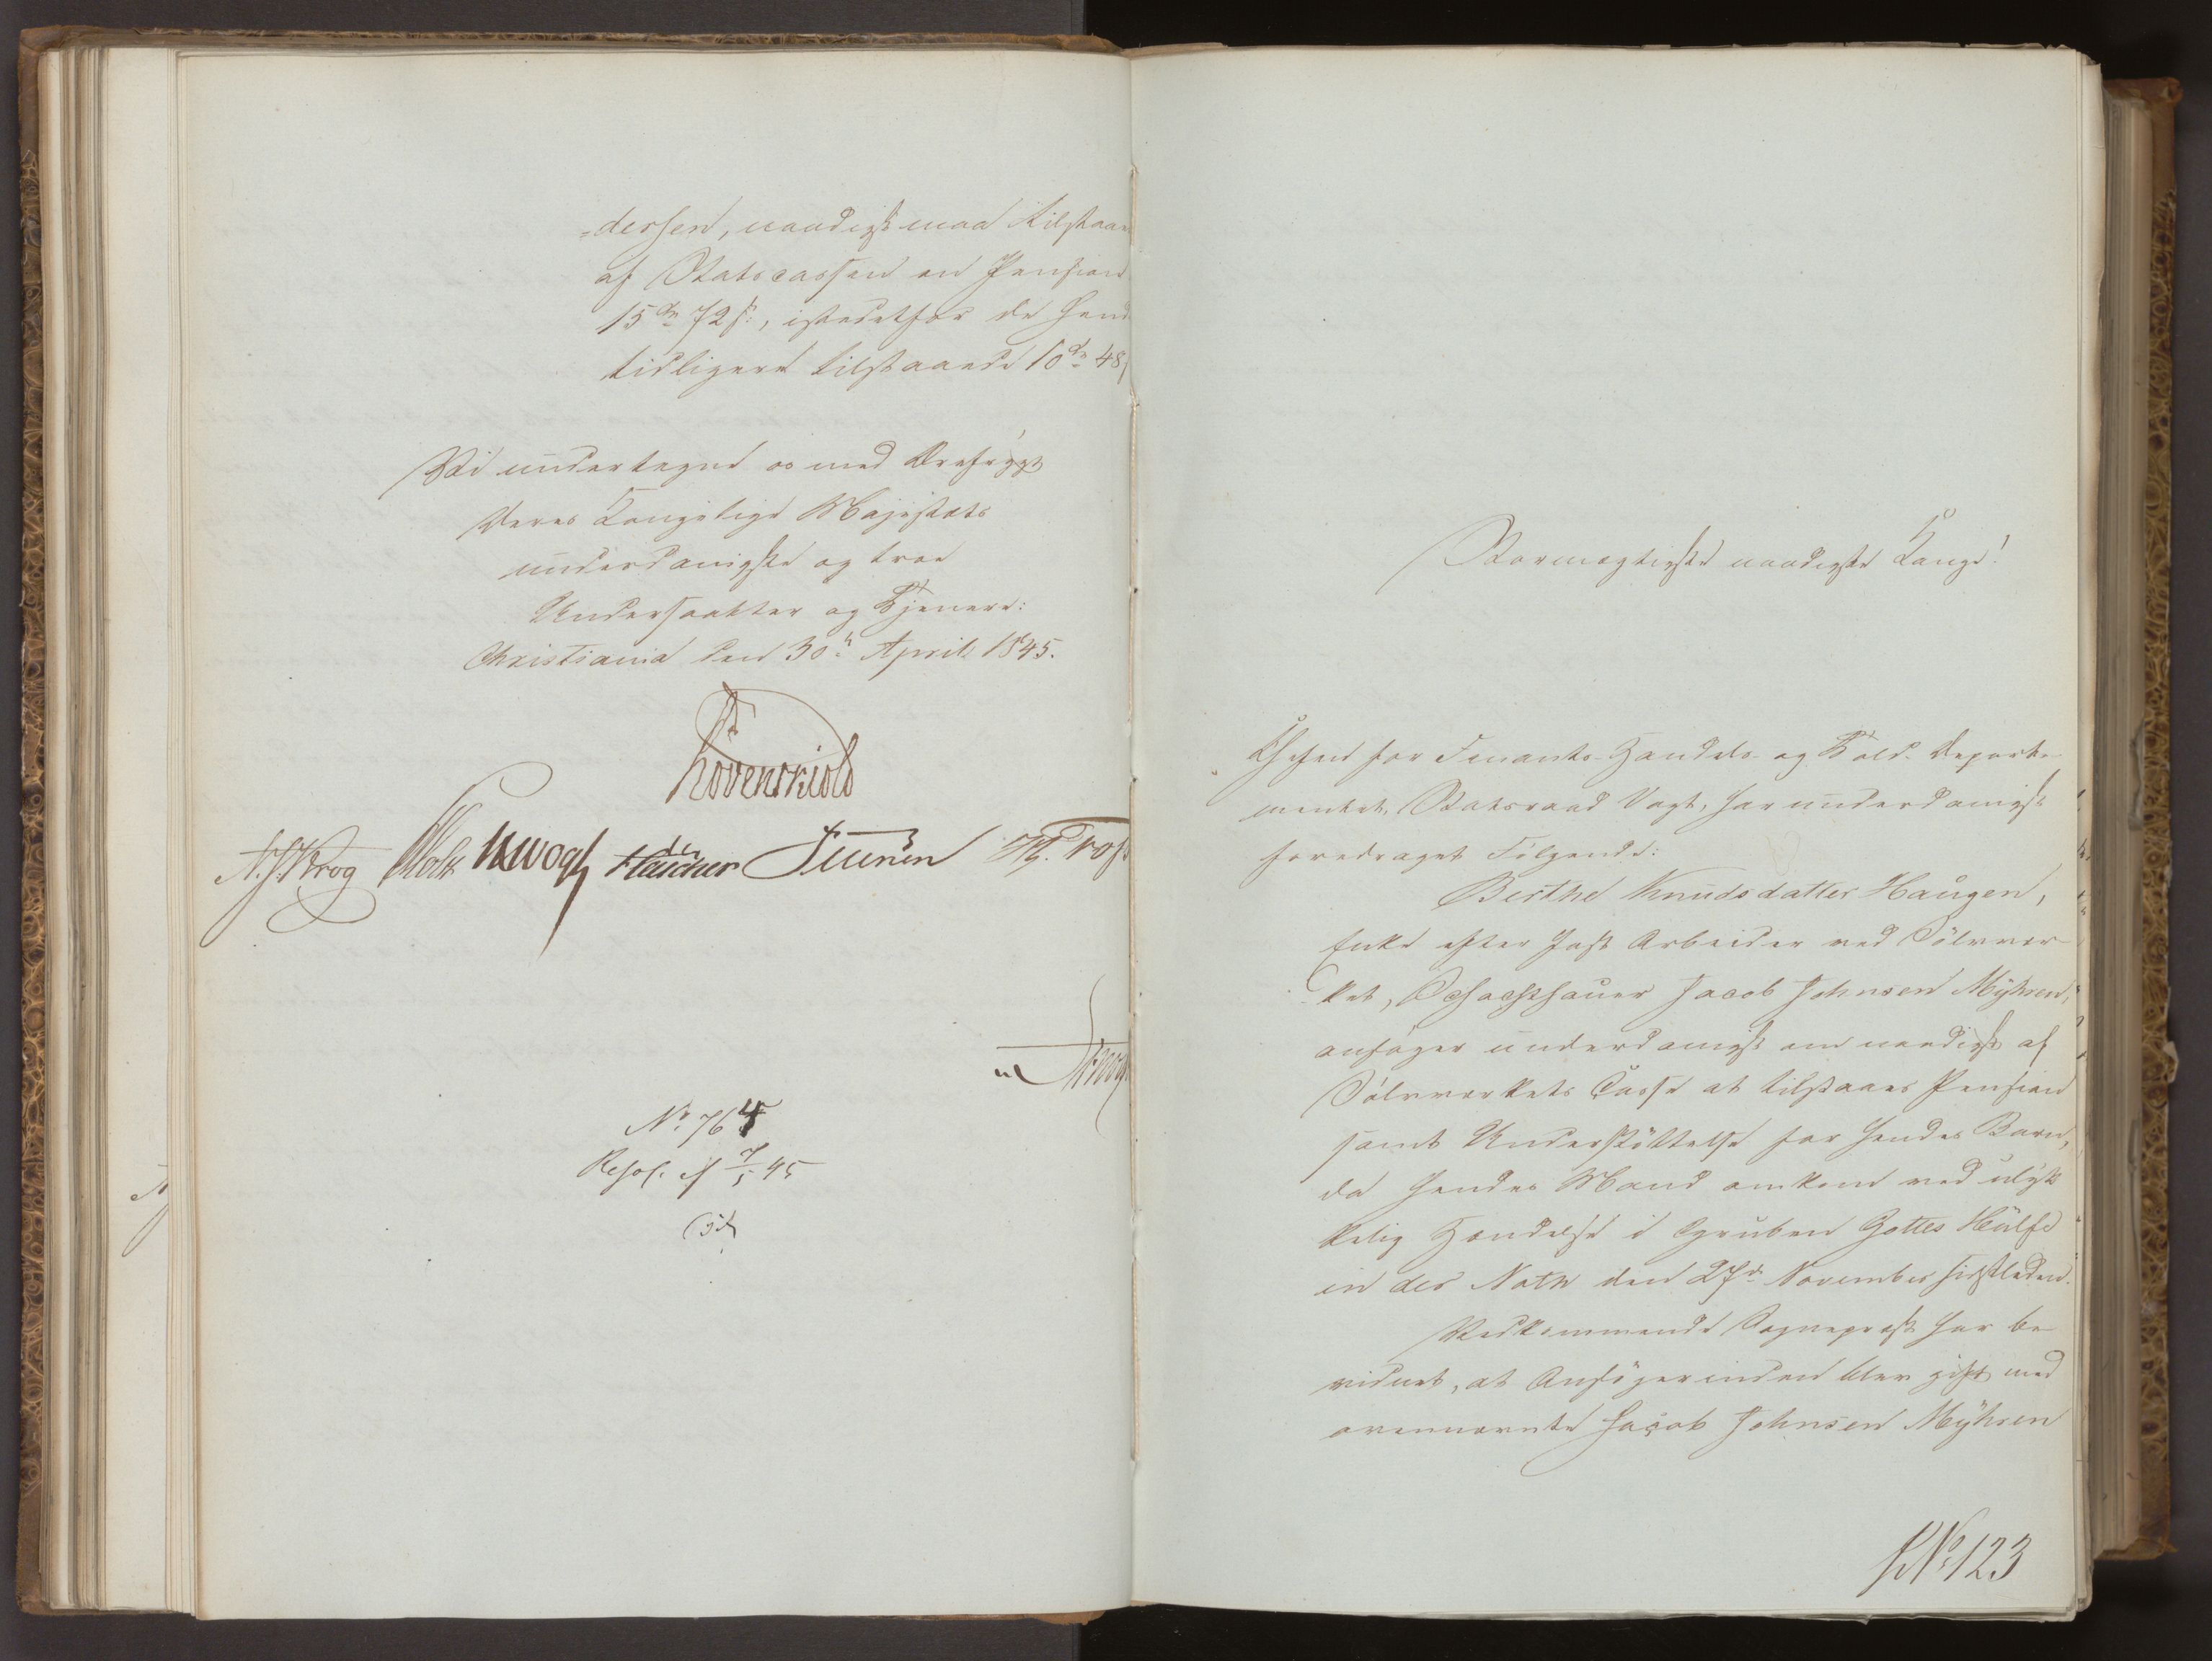 =dersen, naadigst maa tilstaaes
af Statscassen en Pension
15 dr 72 s:, istedetfor de hende
tidligere tilstaaede 10 dr 48 s
Vi undertegne os med Ærefrygt
Deres Kongelige Majestæts
underdanigste og troe
Undersaatter og Tjenere:
Christiania den 30te April 1845.
Løvenskiold
N. J. Krog Holst J H Vogt
No 765
Resol. af 7/5 45
Stormægtigste naadigste Konge!
Chefen for Finants- Handels- og Told-Departe-
mentet, Statsraad Vogt, har underdanigst
foredraget Følgende:
Berthe Knudsdatter Haugen,
Enke efter fast Arbeider ved Sølvvær-
ket, Schachthauer Jacob Johnsen Myhren,
ansøger underdanigst om naadigst af
Sølvværkets Casse at tilstaaes Pension
samt Understøttelse for hendes Barn,
da hendes Mand omkom ved ulyk-
kelig Hændelse i Gruben Gottes Hülfe
in der Noth den 27de November sidstleden.
Vedkommende Sognepræst har be-
vidnet, at Ansøgerinden blev gift med
ovennævnte Jacob Johnsen Myhren
KNo 123